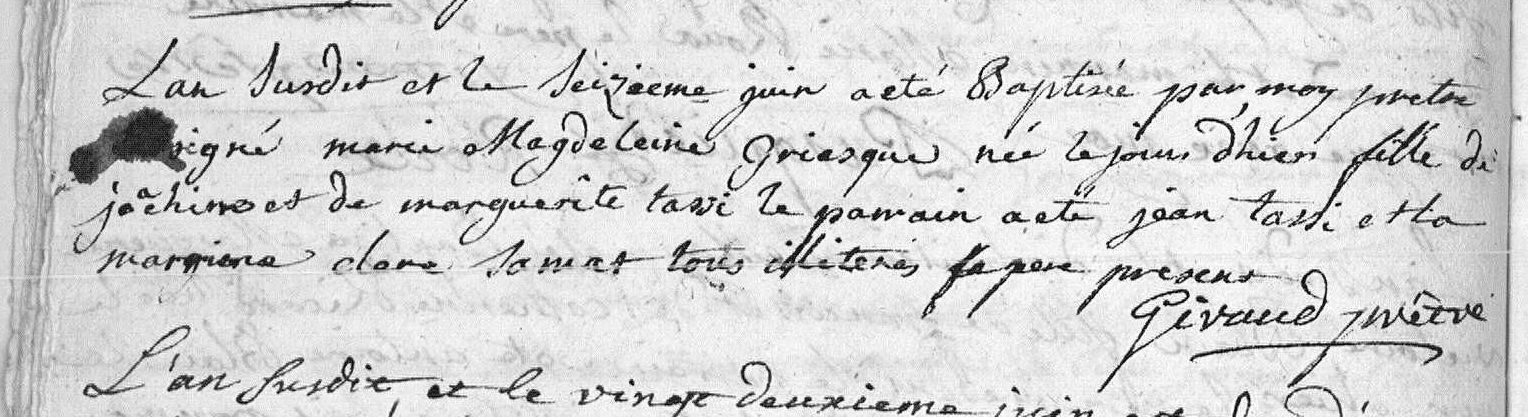 Lan susdit et le seizieme juin a eté Baptisée par moy pretre
signé marie Magdeleine Griesque née le jour d'hier fille de
joachim et de marguerite tassi le parrain a eté jean tassi et la
marriene clere samat tous illiterés le pere present
Giraud prêtre
L'an susdit, et le vingt deuxieme juin